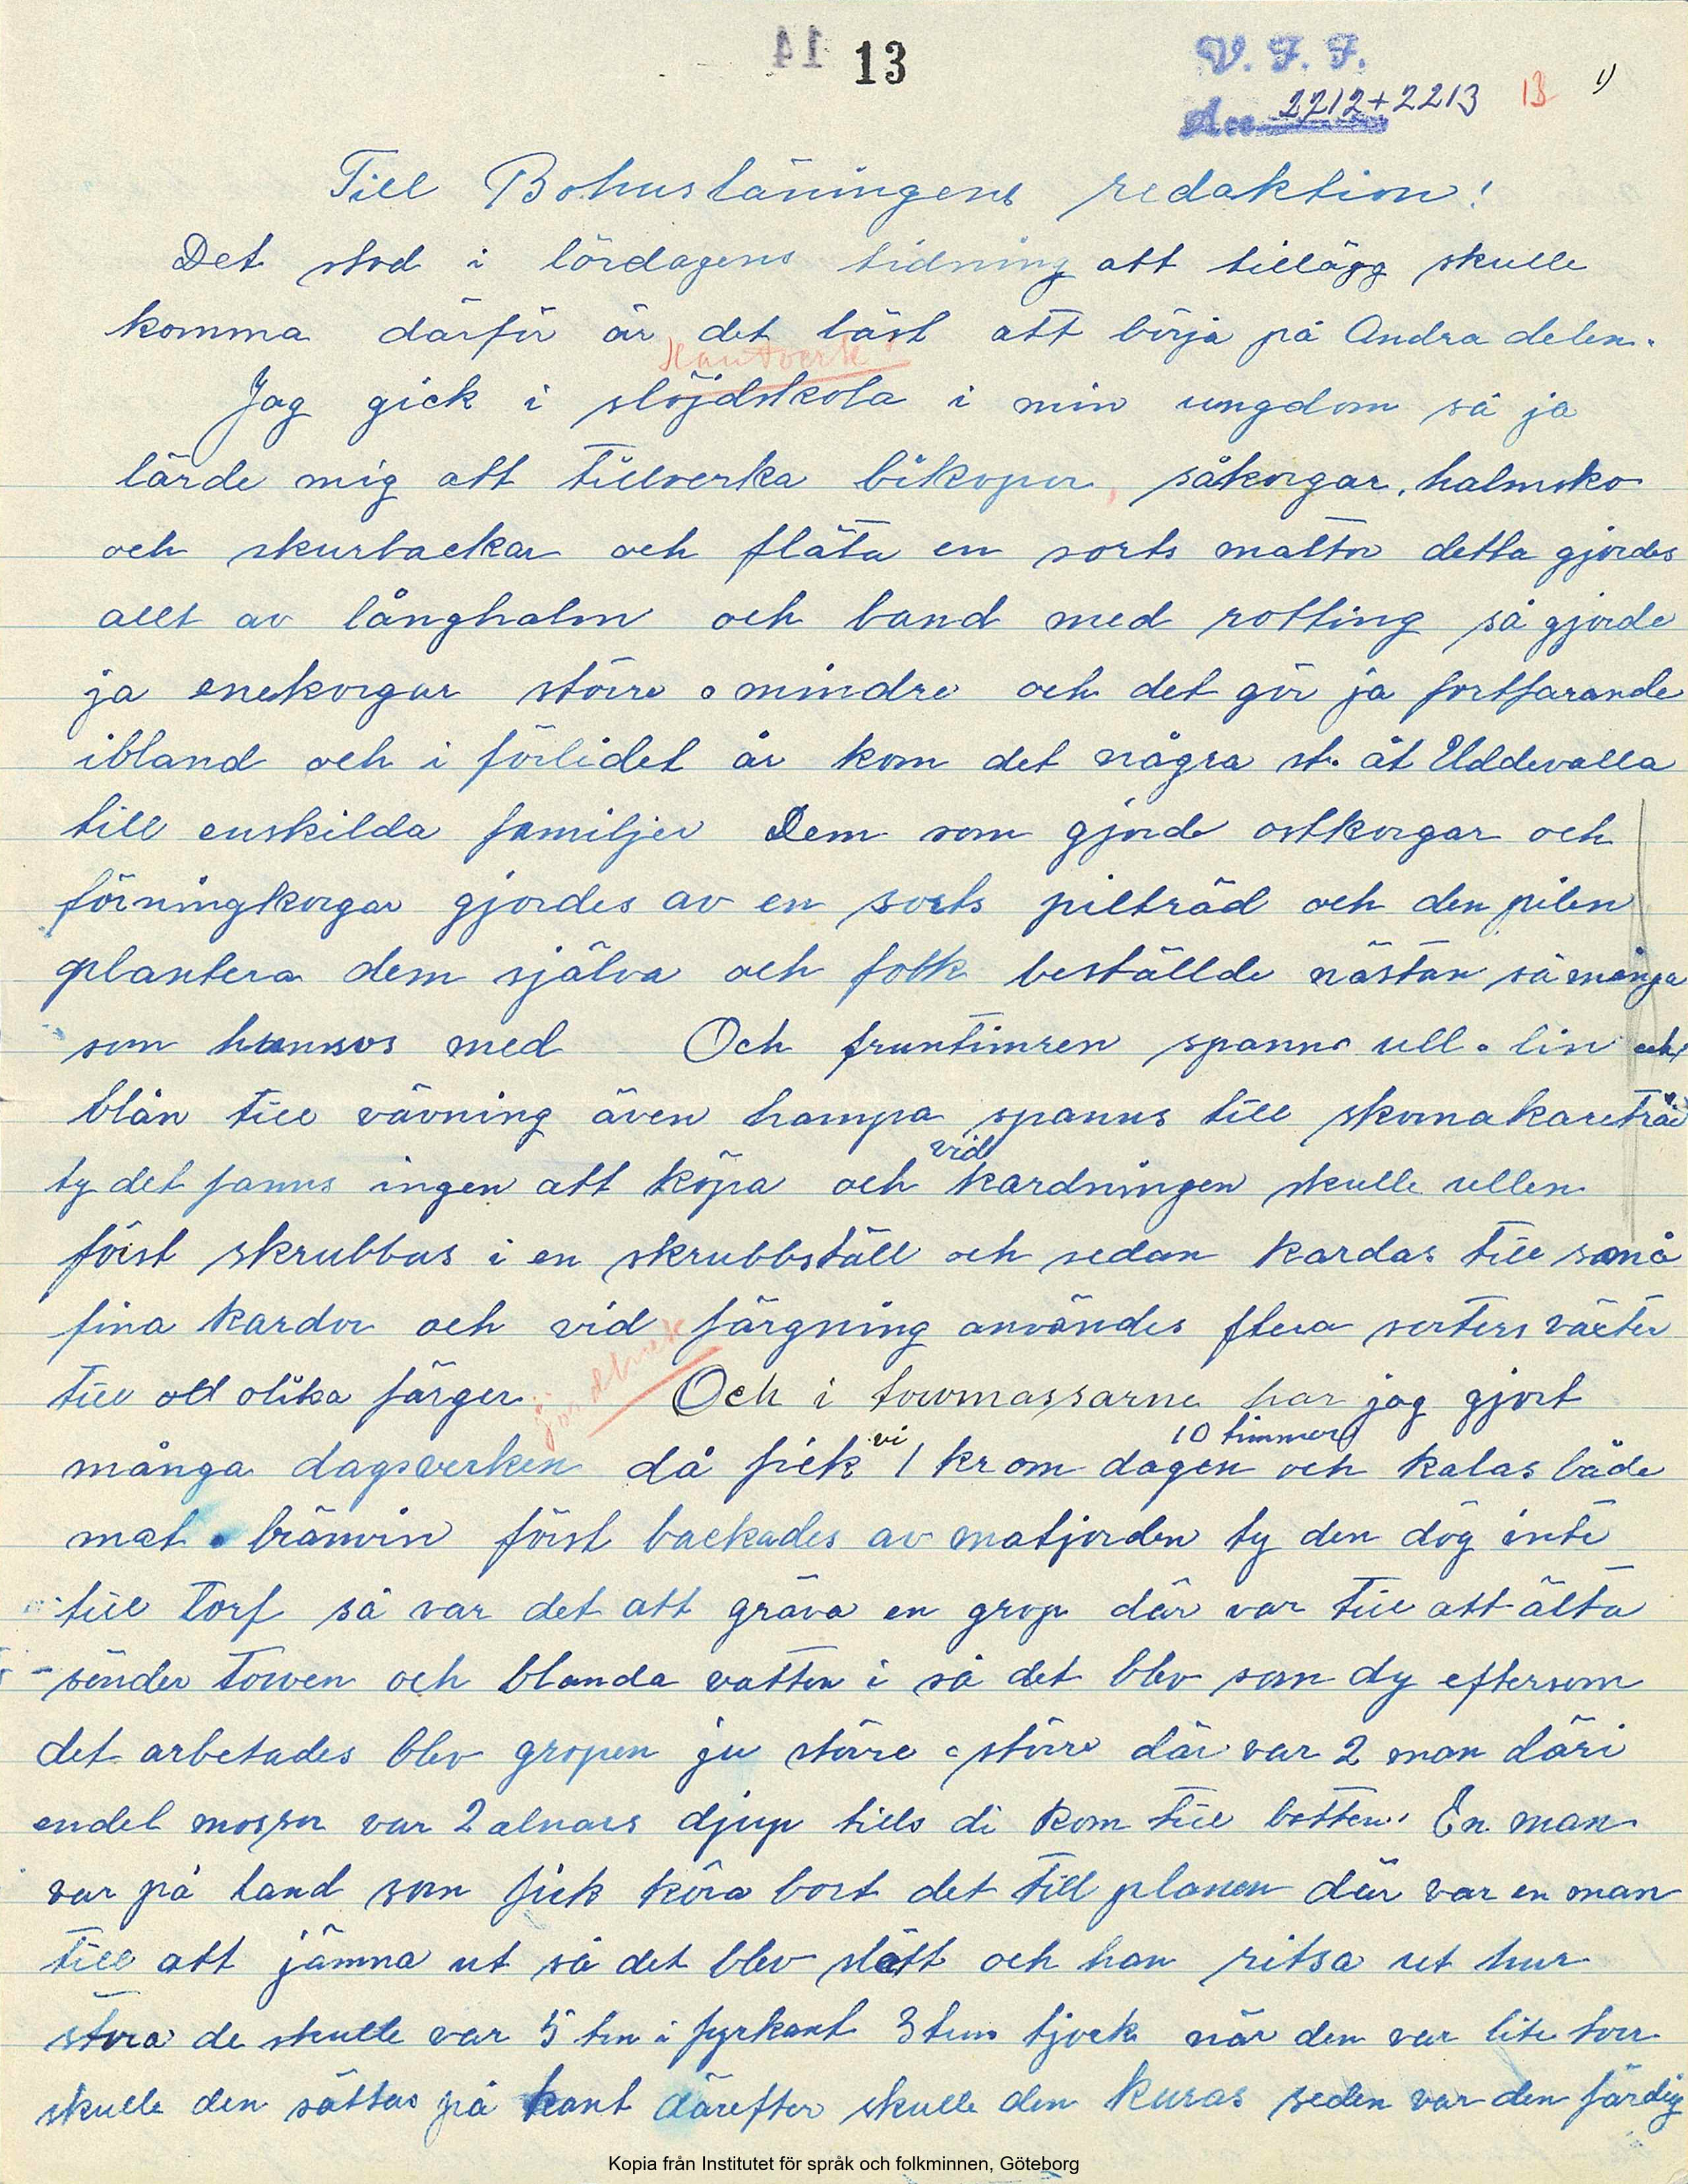 14 13
V. F. F.
Acc 2212+2213 13 1)
Till Bohusläningens redaktion!
Det stod i lördagens tidning att tillägg skulle
komma därför är det bäst att börja på Andra delen.
Hantverk
Jag gick i slöjdskola i min ungdom så ja
lärde mig att tillverka bikupor, såkorgar, halmsko
och skurbackar och fläta en sorts mattor detta gjordes
allt av långhalm och band med rotting så gjorde
ja enekorgar större o mindre och det gör ja fortfarande
ibland och i förlidet år kom det några st. åt Uddevalla
till enskilda familjer Dem som gjorde ostkorgar och
förningkorgar gjordes av en sorts pilträd och den pilen
plantera dem själva och folk beställde nästan så många
som hanns med Och fruntimren spann ull o lin och
blån till vävning även hampa spanns till skomakaretråd
vid
ty det fanns ingen att köpa och kardningen skulle ullen
först skrubbas i en skrubbställ och sedan kardas till små
fina kardor och vid färgning användes flera sorters växter
jordbruk
till ol olika färger Och i towmassarne har jag gjort
vi 10 timmer
många dagsverken då fick 1 kr om dagen och kalas både
mat o bränvin först backades av matjorden ty den dög inte
till Torf så var det att gräva en grop där var till att älta
sönder Towen och blanda vatten i så det blev som dy eftersom
det arbetades blev gropen ju större o större där var 2 man däri
endel mossar var 2 alnars djup tills di kom till botten. En man
var på land som fick köra bort det till planen där var en man
till att jämna ut så det blev slätt och han ritsa ut hur
stora de skulle var 5 tm i fyrkant 3 tum tjock när den var lite torr
skulle den sättas på kant därefter skulle den kuras sedan var den färdig
Kopia från Institutet för språk och folkminnen, Göteborg